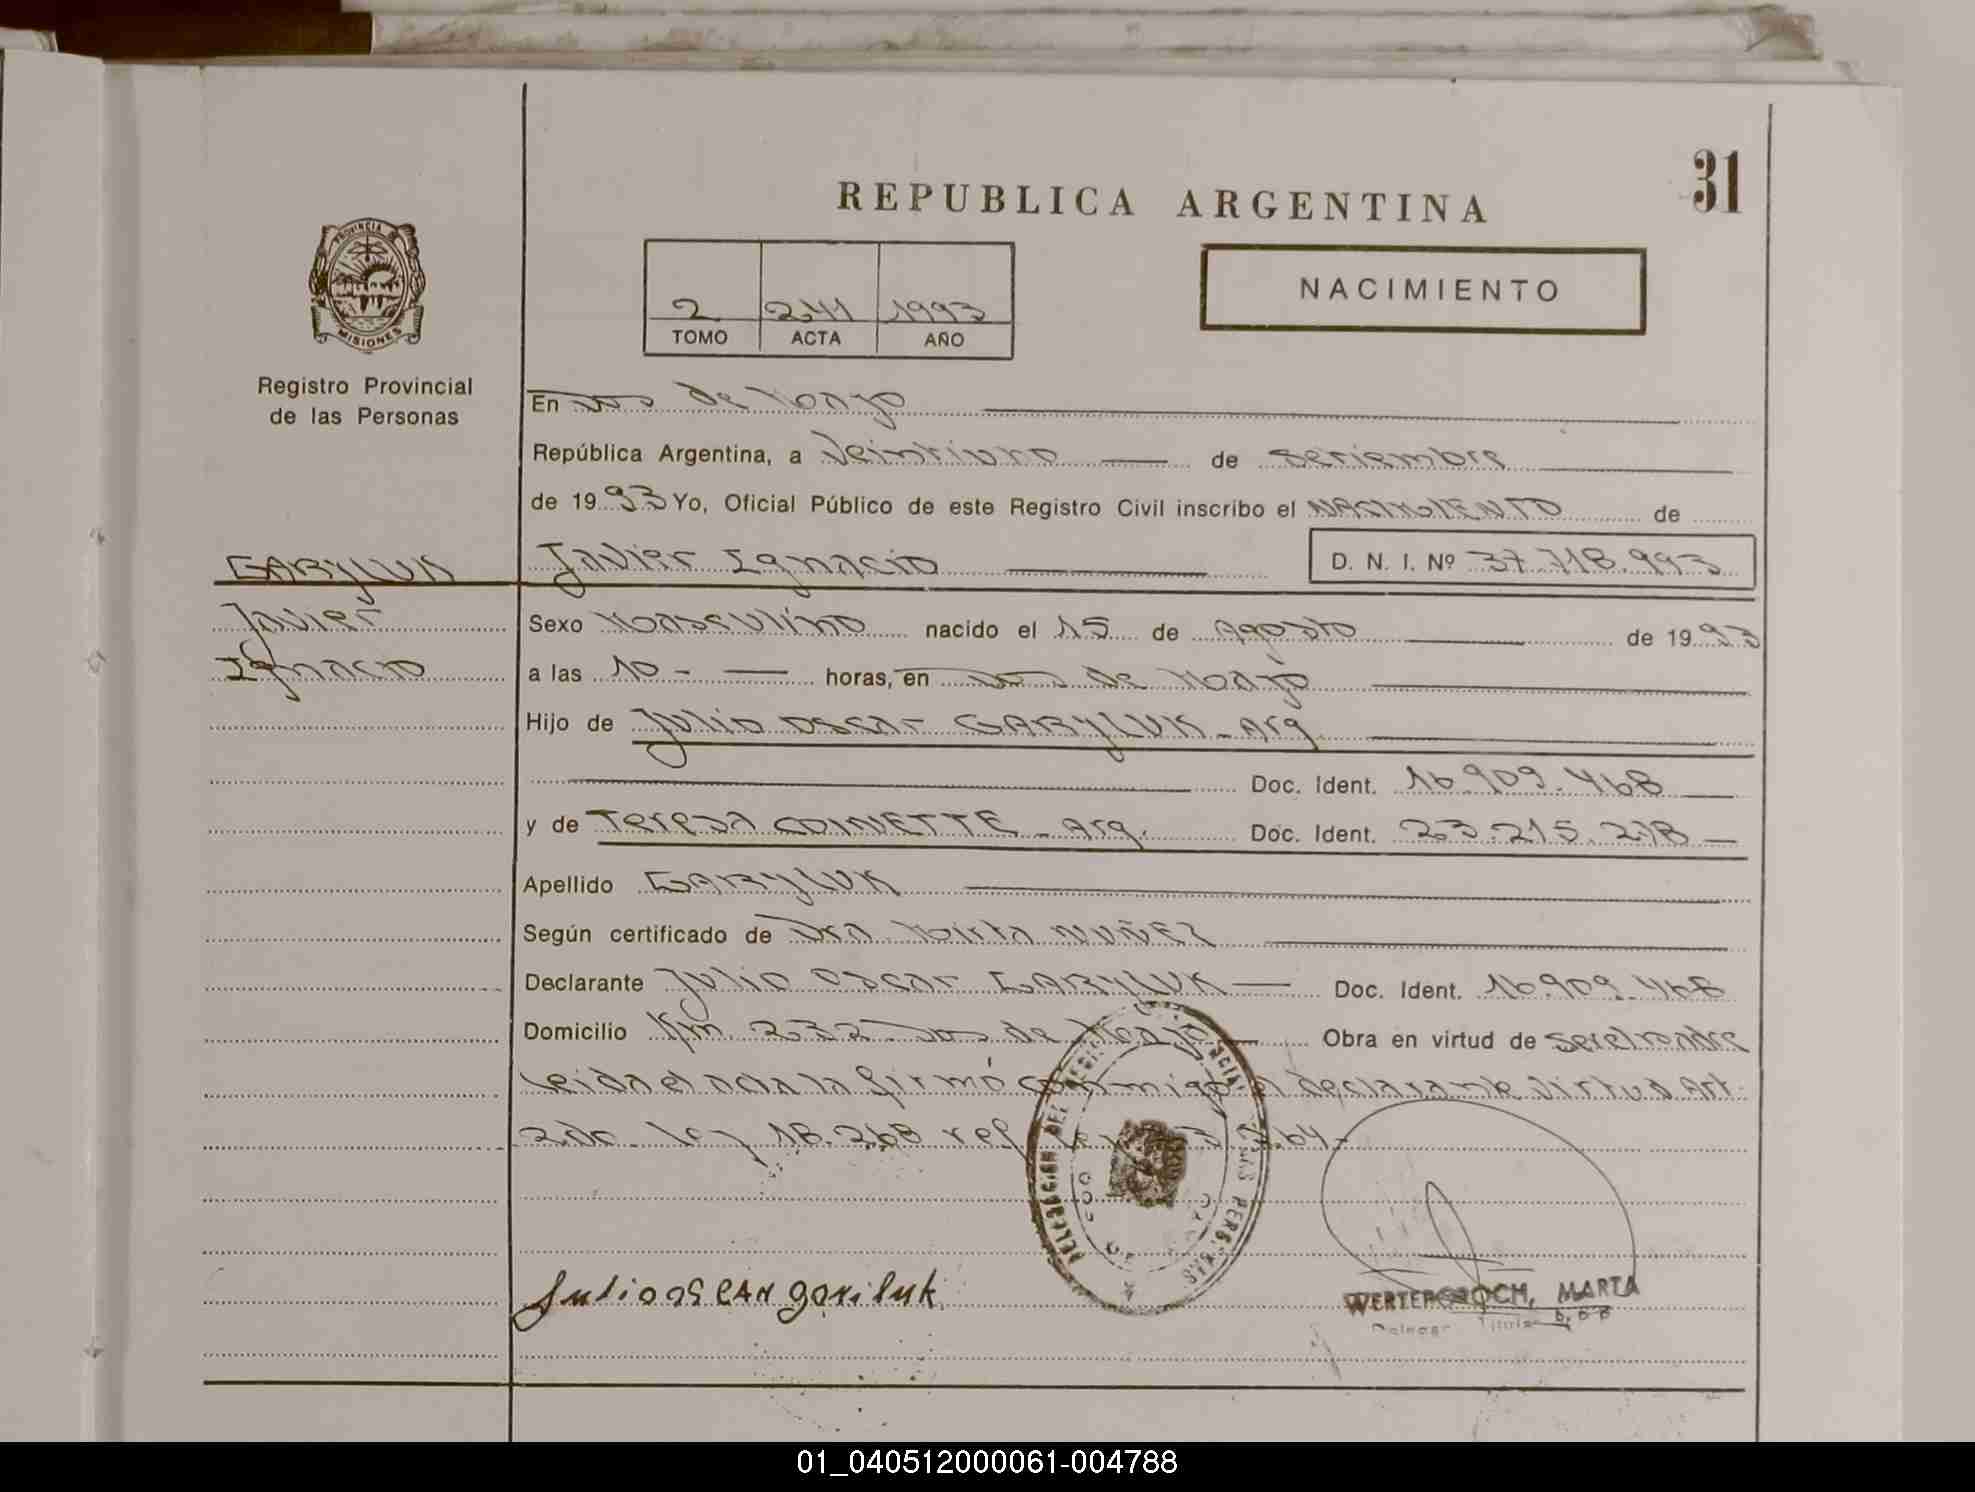 31
REPUBLICA ARGENTINA
PROVINCIA DE
MISIONES
Registro Provincial
de las Personas
2 241 1993
TOMO ACTA AÑO
NACIMIENTO
En Dos de Mayo
República Argentina, a Veintiuno de Setiembre
de 1993 Yo, Oficial Público de este Registro Civil inscribo el NACIMIENTO de
GARYLUK Javier Ignacio D. N. I. Nº 37.718.993
Javier Sexo Masculino nacido el 15 de Agosto de 1993
Ignacio a las 10 - horas, en Dos de Mayo
Hijo de Julio Oscar GARYLUK - Arg
Doc. Ident. 16.909.468
y de Teresa COINETTE - Arg. Doc. Ident. 23.215.218
Apellido GARYLUK
Según certificado de Dra Mirta NUÑEZ
Declarante Julio Oscar GARYLUK Doc. Ident. 16.909.468
Domicilio Km. 232 Dos de Mayo Obra en virtud de ser el padre
Leida el acta la firmó conmigo el declarante virtud Art.
2do. Ley 18.268 ref.
DELEGACION DEL
DOS DE MAYO
Julio oscar gariluk
WERTERGROCH, MARTA
01_040512000061-004788